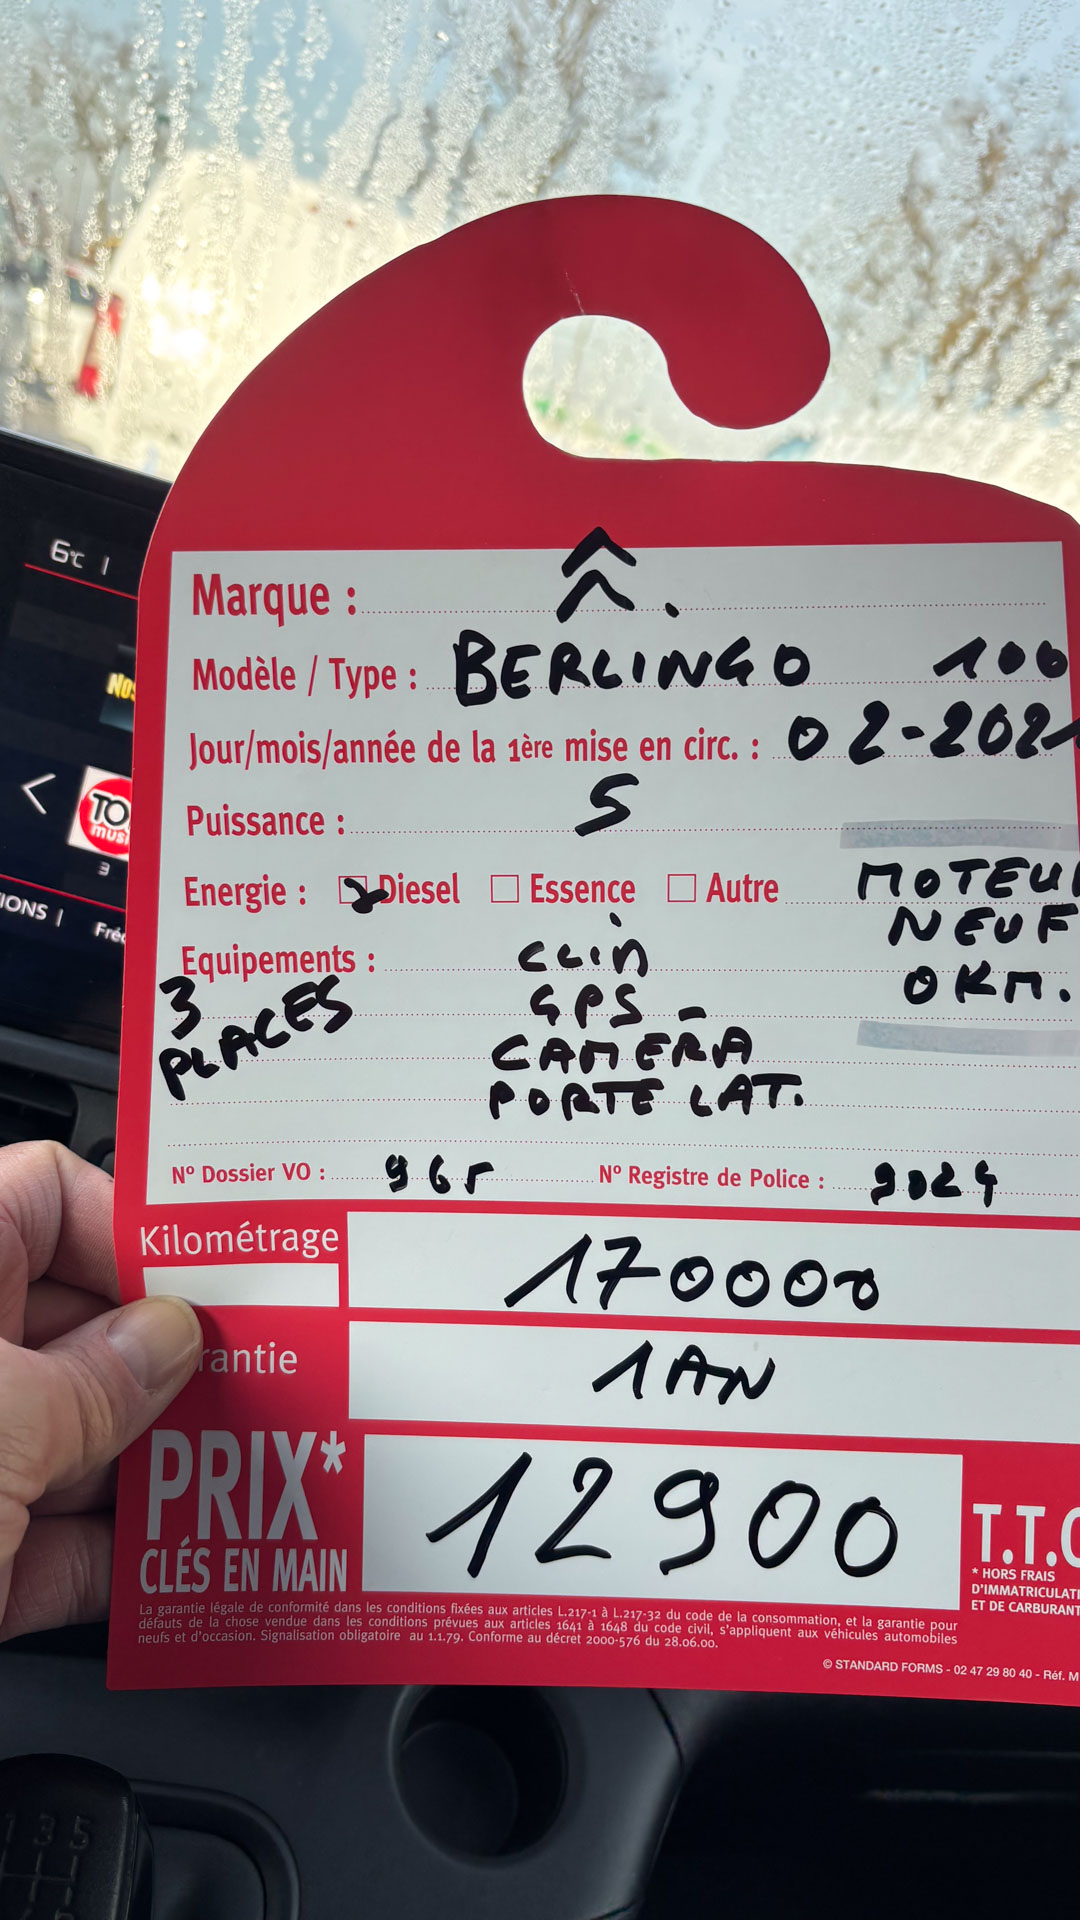 6°C
Marque :
Modèle / Type : BERLINGO 100
Jour/mois/année de la 1ère mise en circ. : 02-2021
Puissance : 5
Energie : Diesel Essence Autre
MOTEUR
NEUF
0KM.
Equipements : CLIM
GPS
CAMERA
PORTE LAT.
3
PLACES
N° Dossier VO : 965 N° Registre de Police : 9024
Kilométrage 170000
rantie 1AN
PRIX* 12900 T.T.C
CLÉS EN MAIN
* HORS FRAIS
D'IMMATRICULATI
ET DE CARBURANT
La garantie légale de conformité dans les conditions fixées aux articles L.217-1 à L.217-32 du code de la consommation, et la garantie pour
défauts de la chose vendue dans les conditions prévues aux articles 1641 à 1648 du code civil, s'appliquent aux véhicules automobiles
neufs et d'occasion. Signalisation obligatoire au 1.1.79. Conforme au décret 2000-576 du 28.06.00.
© STANDARD FORMS - 02 47 29 80 40 - Réf. M
NOS
TO
mus
3
IONS
Fré
1 3 5
2 4